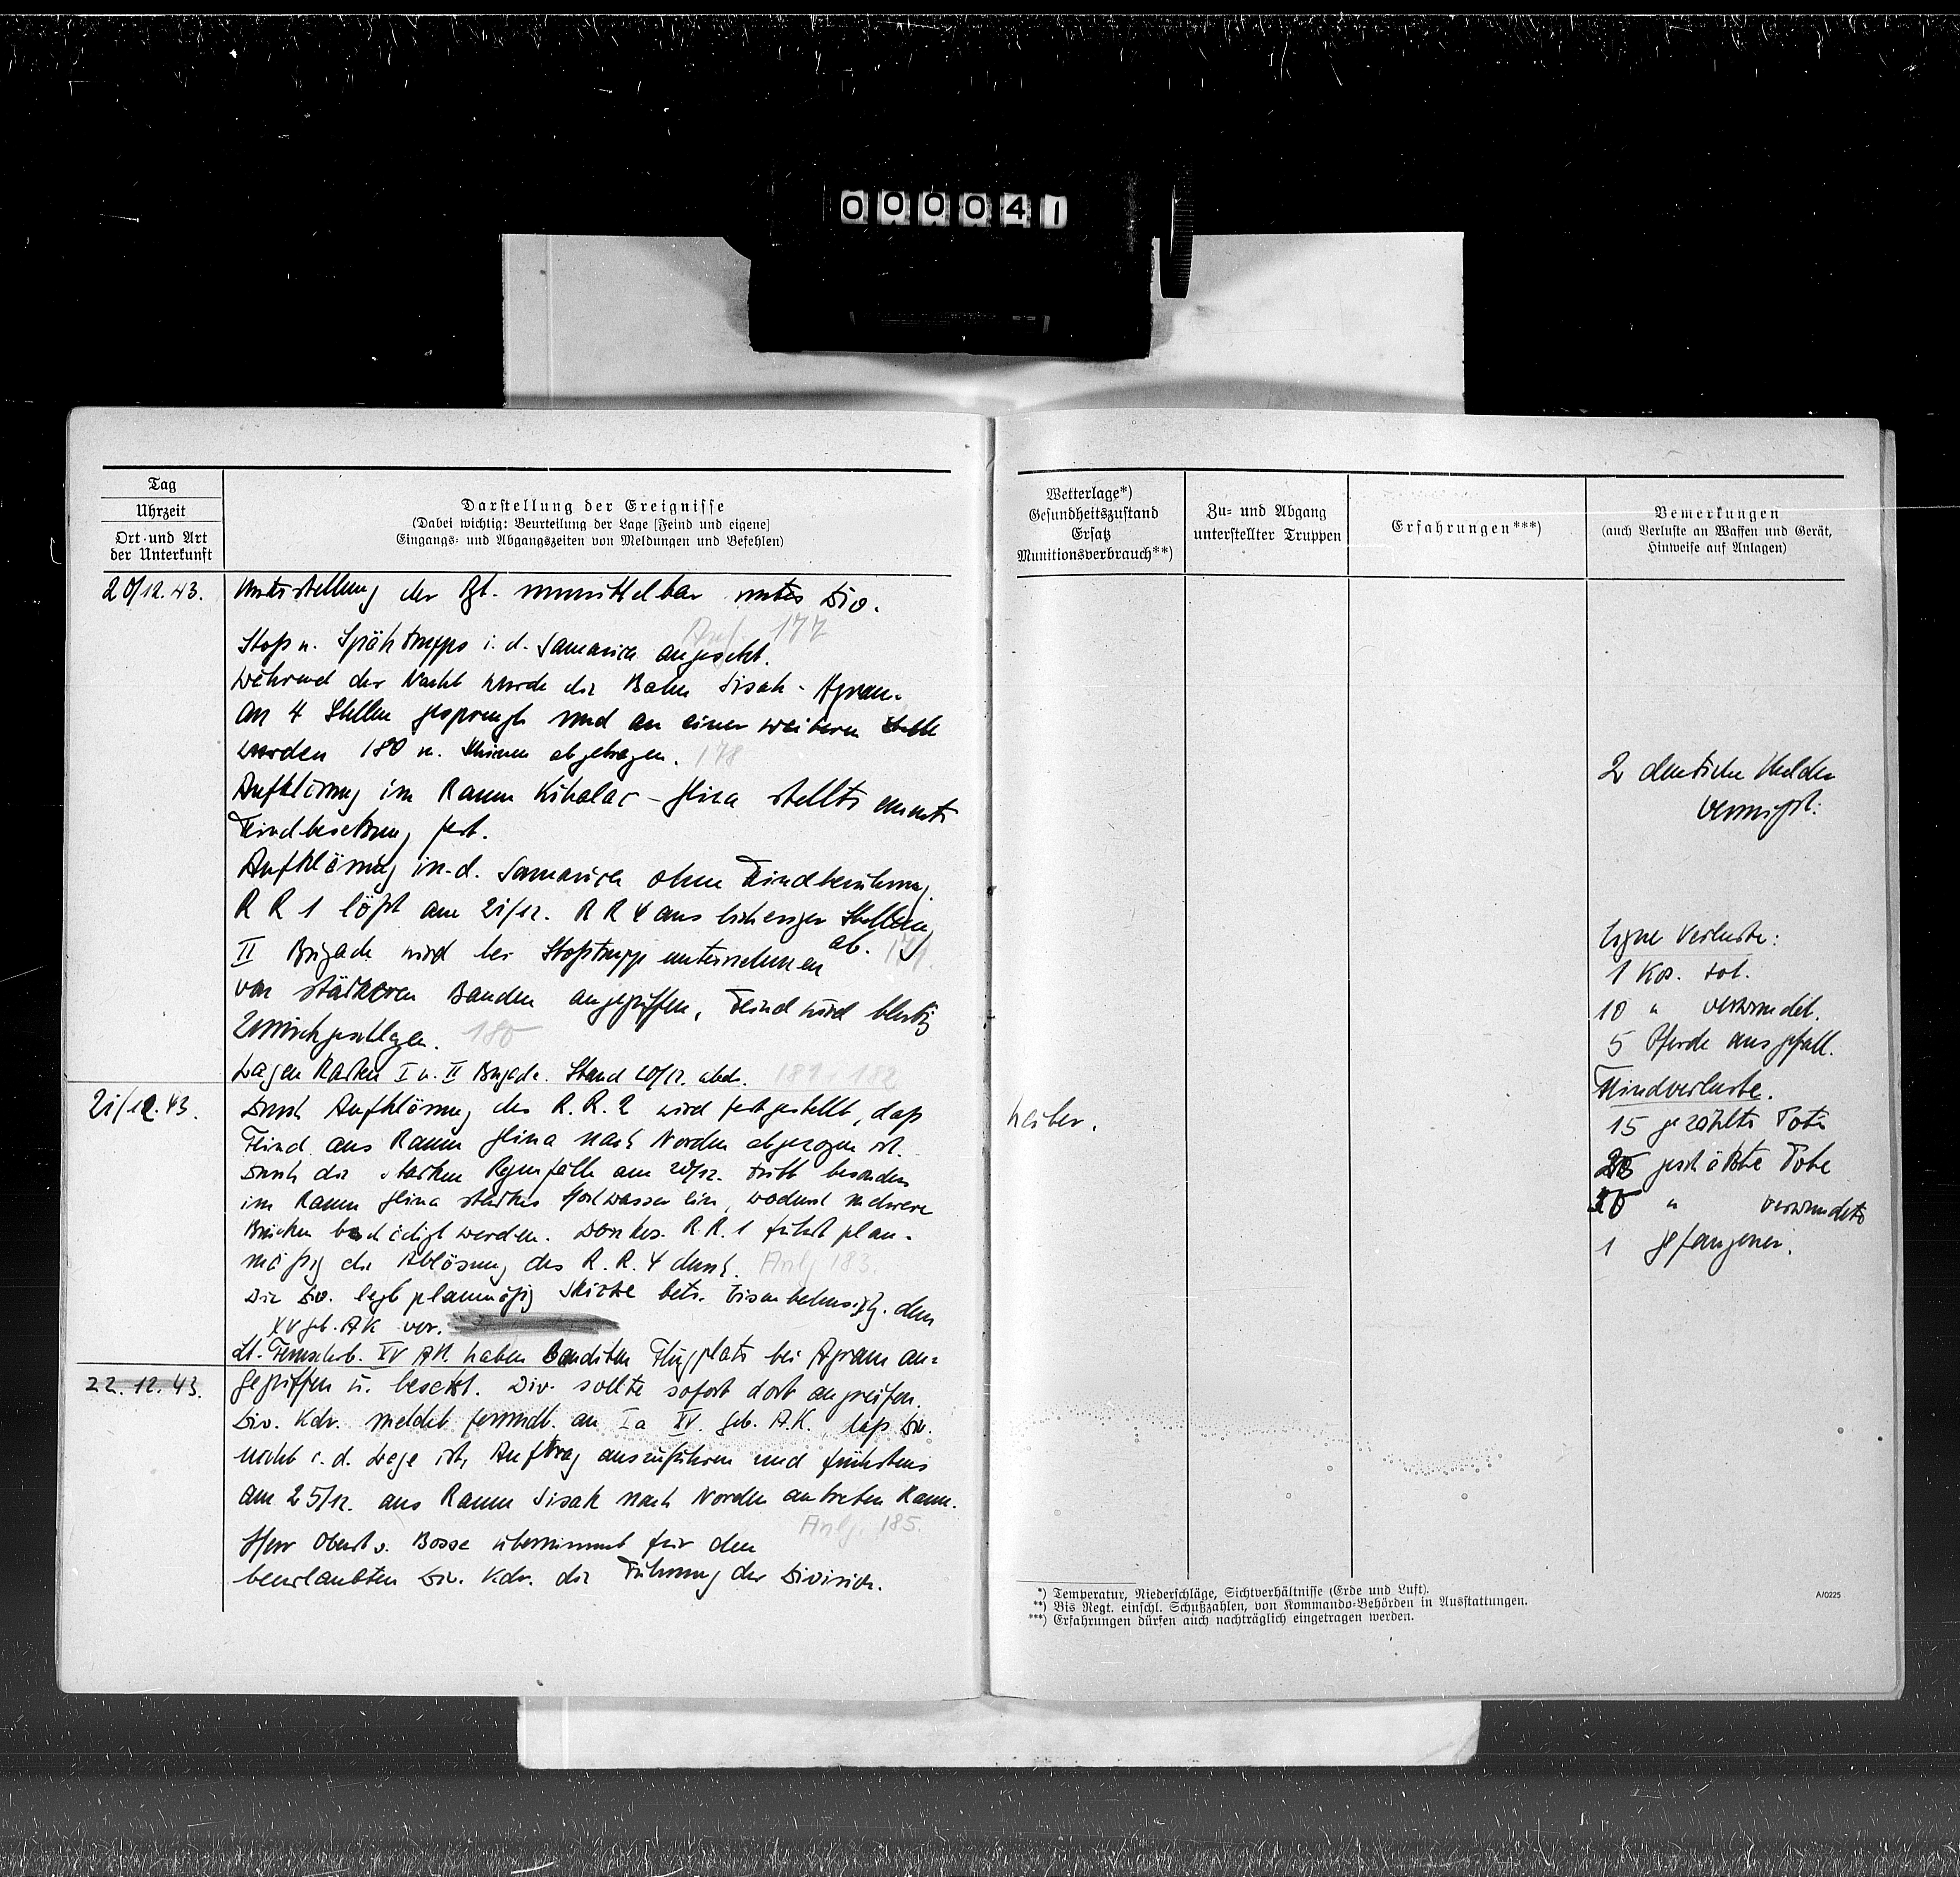 000041
Tag
Uhrzeit
Ort und Art
der Unterkunft
Darstellung der Ereignisse
(Dabei wichtig: Beurteilung der Lage [Feind und eigene]
Eingangs- und Abgangszeiten von Meldungen und Befehlen)
20/12.43.
Unterstellung der Rgt. unmittelbar unter Div.
Anl. 177
Stoß u. Spähtrupps i. d. Samarica angesetzt.
Während der Nacht wurde die Bahn Sisak - Agram
an 4 Stellen gesprengt und an einer weiteren Stelle
wurden 180 m. Schienen abgetragen. 178
Aufklärung im Raum - Glina stellte erneute
Feindbesetzung fest.
Aufklärung in d. Samarica ohne Feindberührung.
R R 1 löst am 21/12. R R 4 aus bisheriger Stellung
ab. 179.
II Brigade wird bei Stoßtruppunternehmen
von stärkeren Banden angegriffen, Feind wird blutig
zurückgeschlagen. 180
Lagen Karten I u. II Brigade. Stand 20/12. abds. 181 u 182
21/12.43.
Durch Aufklärung des R.R. 2 wird festgestellt, daß
Feind aus Raum Glina nach Norden abgezogen ist.
Durch die starken Regenfälle am 20/12. tritt besonders
im Raum Glina starkes Hochwasser ein, wodurch mehrere
Brücken beschädigt werden. Donkos. R.R. 1 führt plan-
mäßig die Ablösung des R.R. 4 durch. Anlg 183.
Die Div. legt planmäßig Skizze betr. dem
XV Geb. AK vor.
Lt. Fernschrb. XV AK. haben Banditen Flugplatz bei Agram an-
22.12.43.
gegriffen u. besetzt. Div. sollte sofort dort angreifen.
Div. Kdr. meldet fernmdl. an Ia XV. Geb. A.K., daß Div.
nicht i. d. Lage ist, Auftrag auszuführen und frühestens
am 25/12. aus Raum Sisak nach Norden antreten kann.
Anlg. 185.
Herr Oberst v. Bosse übernimmt für den
beurlaubten Div. Kdr. die Führung der Division.
Wetterlage*)
Gesundheitszustand
Ersatz
Munitionsverbrauch**)
Zu- und Abgang
unterstellter Truppen
Erfahrungen***)
Bemerkungen
(auch Verluste an Waffen und Gerät,
Hinweise auf Anlagen)
2 deutsche Melder
vermißt.
Eigne Verluste:
1 Kos. tot.
10 " verwundet.
5 Pferde ausgefall.
Feindverluste.
15 gezählte Tote
geschätzte Tote
" verwundete
1 gefangener.
heiter.
*) Temperatur, Niederschläge, Sichtverhältnisse (Erde und Luft).
**) Bis Regt. einschl. Schußzahlen, von Kommando-Behörden in Ausstattungen.
***) Erfahrungen dürfen auch nachträglich eingetragen werden.
A/0225